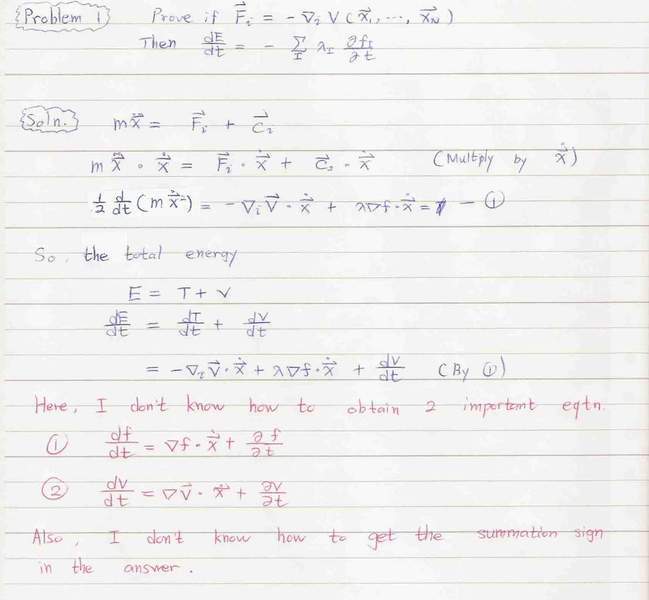 Problem 1 Prove if F⃗ᵢ = - ∇ᵢ V (x⃗₁, ..., x⃗_N)
Then dE/dt = - Σ_I λ_I ∂f_I/∂t
Soln. mẍ⃗ = F⃗ᵢ + C⃗ᵢ
mẍ⃗ · ẋ⃗ = F⃗ᵢ · ẋ⃗ + C⃗ᵢ · ẋ⃗ (Multiply by ẋ⃗)
1/2 d/dt (m ẋ⃗²) = - ∇ᵢV⃗ · ẋ⃗ + λ∇f · ẋ⃗ = — ①
So, the total energy
E = T + V
dE/dt = dT/dt + dV/dt
= - ∇ᵢV⃗ · ẋ⃗ + λ∇f · ẋ⃗ + dV/dt (By ①)
Here, I don't know how to obtain 2 important eqtn.
① df/dt = ∇f · ẋ⃗ + ∂f/∂t
② dV/dt = ∇V⃗ · ẋ⃗ + ∂V/∂t
Also, I don't know how to get the summation sign
in the answer.